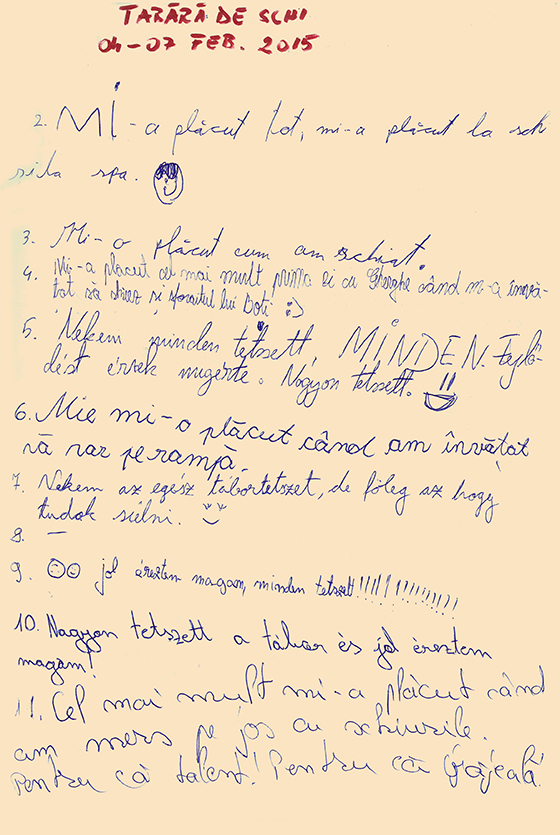 TABĂRĂ DE SCHI
04-07 FEB. 2015
2. Mi-a plăcut tot, mi-a plăcut la sch
si la spa.
3. Mi-a plăcut cum am schiat.
4. Mi-a plăcut cel mai mult prima zi cu Gheghe când m-a învă-
țat să schiez și sforăitul lui Boti :)
5. Nekem minden tetszett, MINDEN. Fejlő-
dést érzek magamba. Nagyon tetszett.
6. Mie mi-a plăcut când am învățat
să sar pe rampă.
7. Nekem az egész tábortetszet, de főleg az hogy
tudok síelni.
8. —
9. jól éreztem magam, minden tetszett!!!!!!!!!!!!!!!
10. Nagyon tetszett a tábor és jól éreztem
magam!
11. Cel mai mult mi-a plăcut când
am mers pe jos cu schiurile.
Pentru că talent! Pentru că